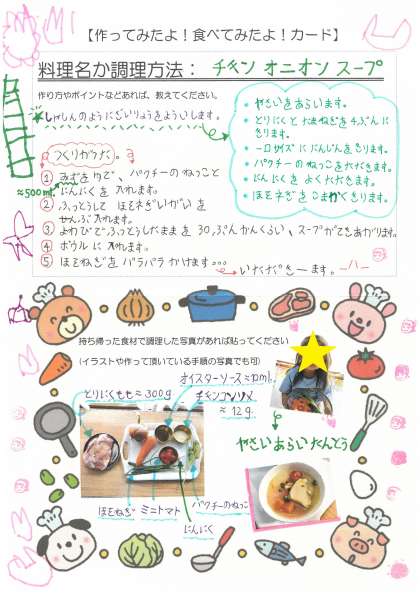 【作ってみたよ！食べてみたよ！カード】
料理名か調理方法： チキン オニオン スープ
作り方やポイントなどあれば、教えてください。
☆しゃしんのようにざいりょうをよういします。
・やさいをあらいます。
・とりにくとたまねぎを4ぶんにきります。
・一口サイズににんじんをきります。
・パクチーのねっこをたたきます。
・にんにくをよくたたきます。
・ほそネギをこまかくきります。
つくりかただ。
① みずをゆで、パクチーのねっことにんにくを入れます。
≈500ml
② ふっとうしてほそネギいがいをぜんぶ入れます。
③ よわびでふっとうしたままを30ぷんかんくらい、スープができあがります。
④ ボウルに入れます。
⑤ ほそねぎをパラパラかけます。。。
いただだきーます。
持ち帰った食材で調理した写真があれば貼ってください
(イラストや作って頂いている手順の写真でも可)
オイスターソース≈10ml.
とりにくもも≈300g
チキンコンソメ
≈12g.
やさいあらいたんとう
ほそねぎ
ミニトマト
パクチーのねっこ
にんにく